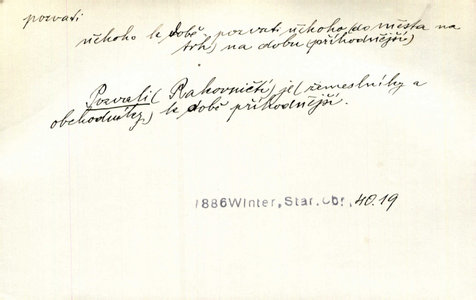 pozvati
někoho k době, pozvati někoho (do města na
trh) na dobu (příhodnější)
Pozvali (Rakovničtí) je (řemeslníky a
obchodníky) k době příhodnější.
1886 Winter, Star. Obr., 40.19